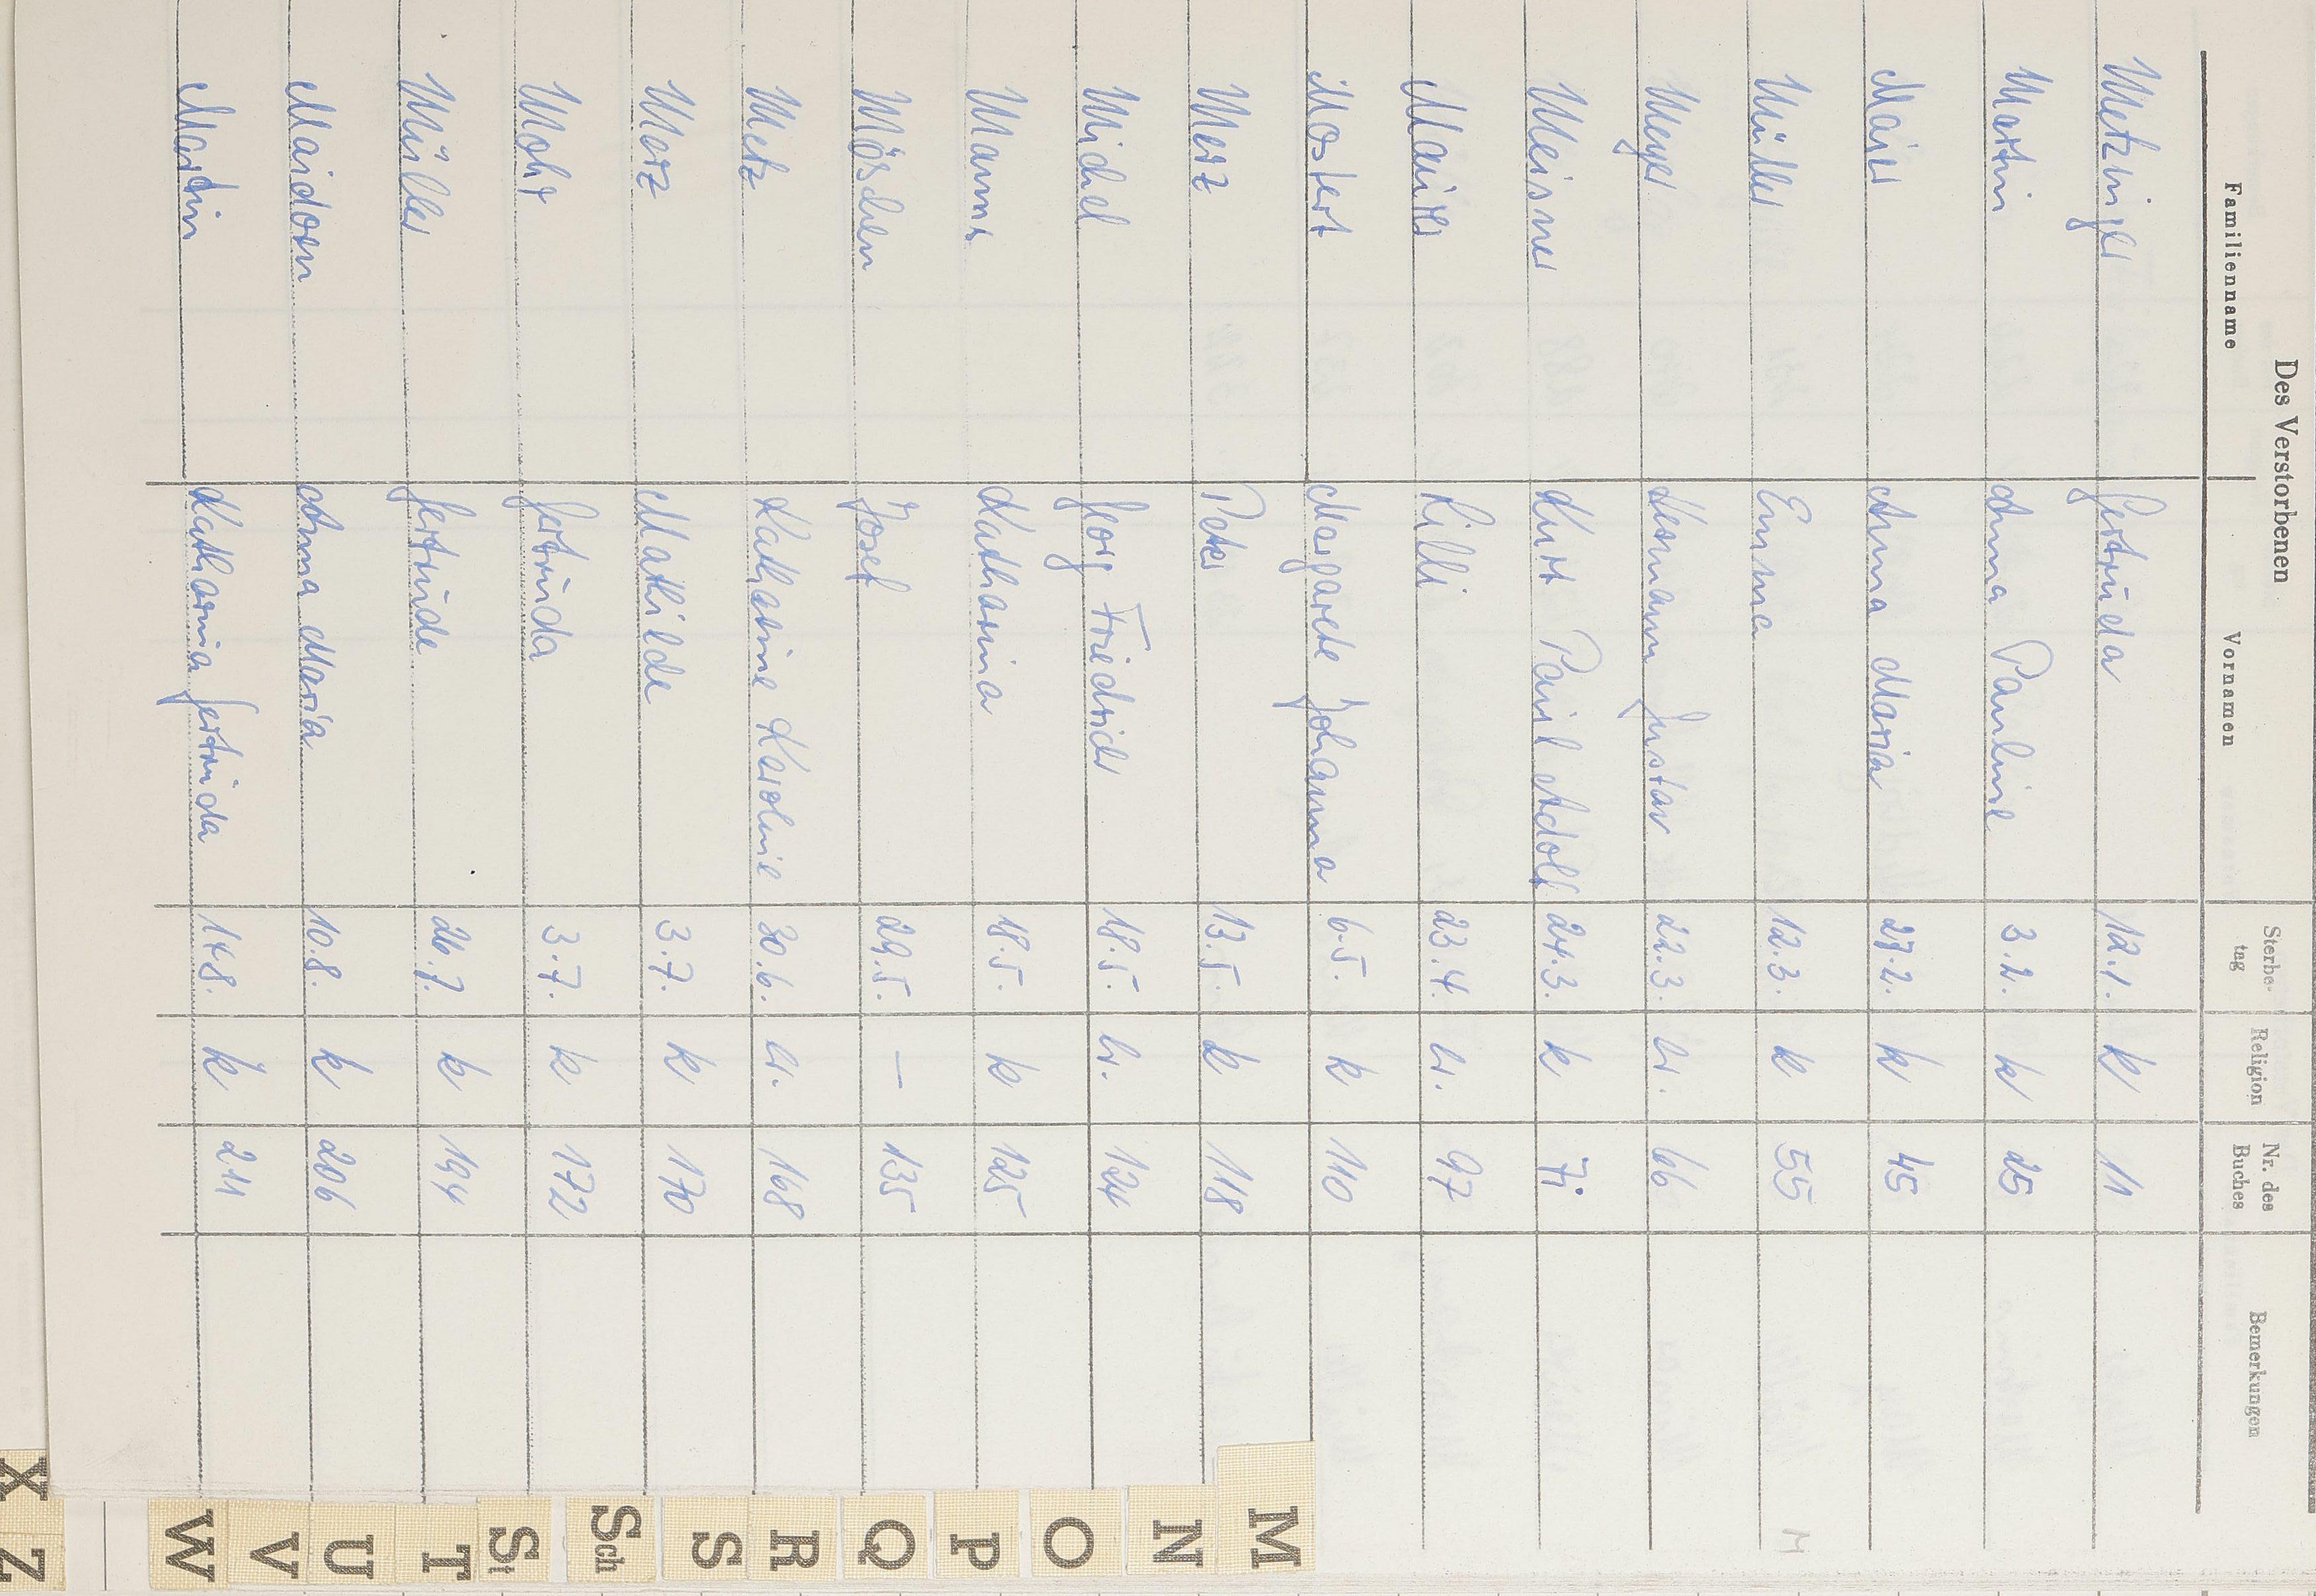 Des Verstorbenen
Familienname Vornamen Sterbe-tag Religion Nr. des Buches Bemerkungen
Metzinger Gertruda 12.1. k 11
Martin Anna Pauline 3.2. k 25
Maier Anna Maria 27.2. k 45
Müller Emma 12.3. k 55
Meyer Hermann Gustav 22.3. ev. 66
Meisner Kurt Paul Adolf 24.3. k 71
Maurer Lilli 23.4. ev. 97
Mostert Margarete Johanna 6.5. k 110
Merz Peter 13.5. k 118
Michel Georg Friedrich 18.5. ev. 124
Manns Katharina 18.5. k 125
Möschen Josef 29.5. – 135
Metz Katharine Karoline 30.6. ev. 168
Merz Mathilde 3.7. k 170
Mohr Gertruda 3.7. k 172
Müller Gertrude 26.7. k 194
Maidorn Anna Maria 10.8. k 206
Martin Katharina Gertruda 14.8. k 211
M
M
N
O
P
Q
R
S
Sch
St
T
U
V
W
X
Z